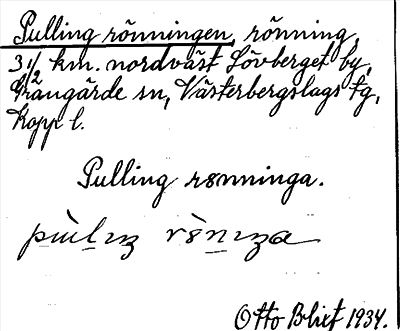 Pulling rönningen, rönning,
3 1/2 km. nordväst Lövberget by,
Grangärde sn, Västerbergslags tg,
Kopp l.
Pulling rønninga.
Otto Blixt 1934.